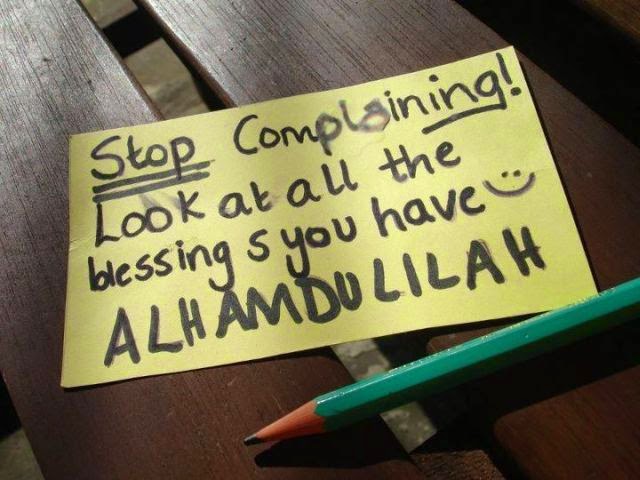 Stop Complaining!
Look at all the
blessings you have
ALHAMDULILAH